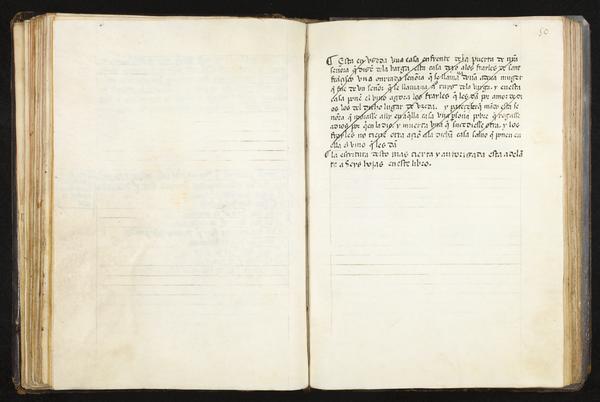 50
¶ Esta en vzeda vna casa enfrente dela puerta de nr̃a
señora q̃ dizẽ dela barga. esta casa dexo alos frayles de sant
frãcisco vna onrrada señora q̃ se llama doña muger
q̃ fue de vn señor q̃ se llamaua dela y enesta
casa ponẽ el vino agora los frayles q̃ les dã por amor de di
os los del dicho lugar de vzeda. y mãdo esta se
ñora q̃ morasse alli enaq̃lla casa vna psona pobre q̃ rogasse
adios por quien la dio. y muerta vna q̃ sucediesse otra. y los
frayles no tienẽ otra açiõ ala dicha casa saluo q̃ ponen en
ella el vino q̃ les dã
¶ la escritura desto mas cierta y autorizada esta adelã
te a seys hojas eneste libro.